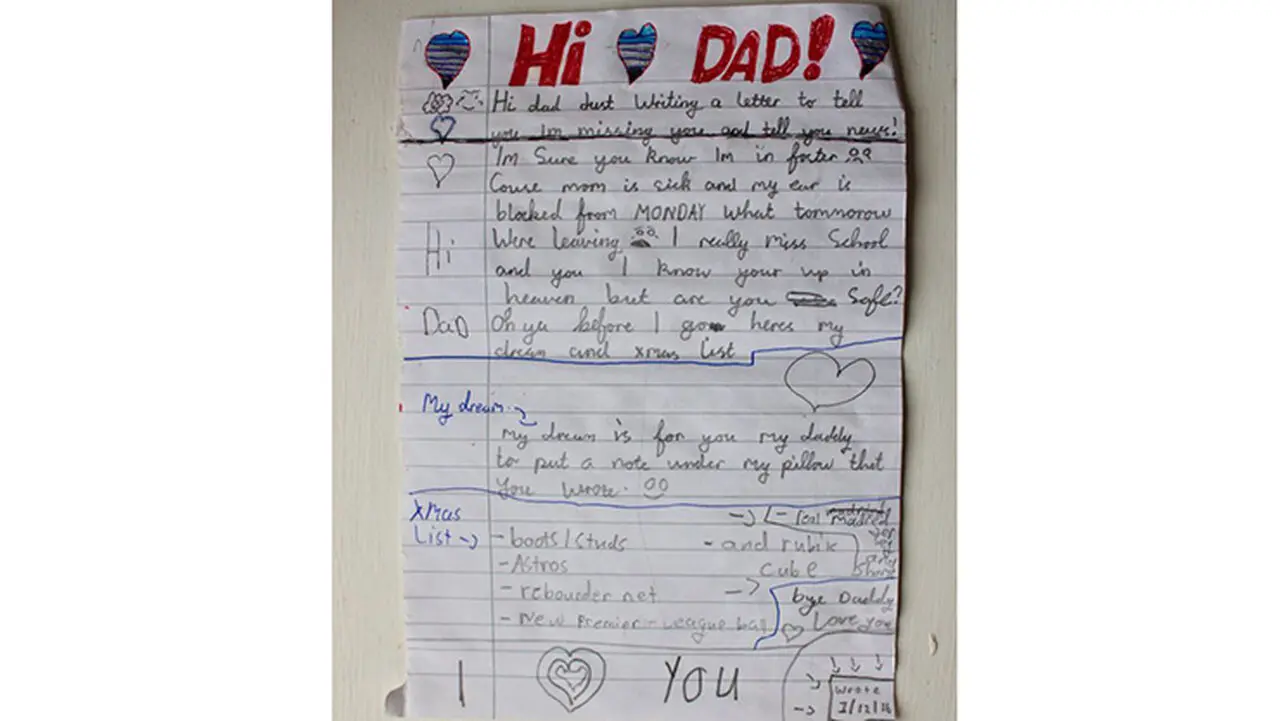 Hi DAD!
Hi dad Just Writing a letter to tell
you Im missing you and tell you news!
Im Sure you know Im in foster
Couse mom is sick and my ear is
blocked from MONDAY What tommorow
Hi
Were leaving I really miss School
and you I know your up in
heaven but are you Safe?
DaD
Oh ya before I go heres my
dream and xmas list
My dream
My dream is for you my daddy
to put a note under my pillow that
you wrote.
Xmas
List
- boots/studs
- Astros
- rebounder net
- New Premier - League ball
- real Madrid
- and rubix
cube
bye Daddy
Love you
I YOU
Wrote
/12/16